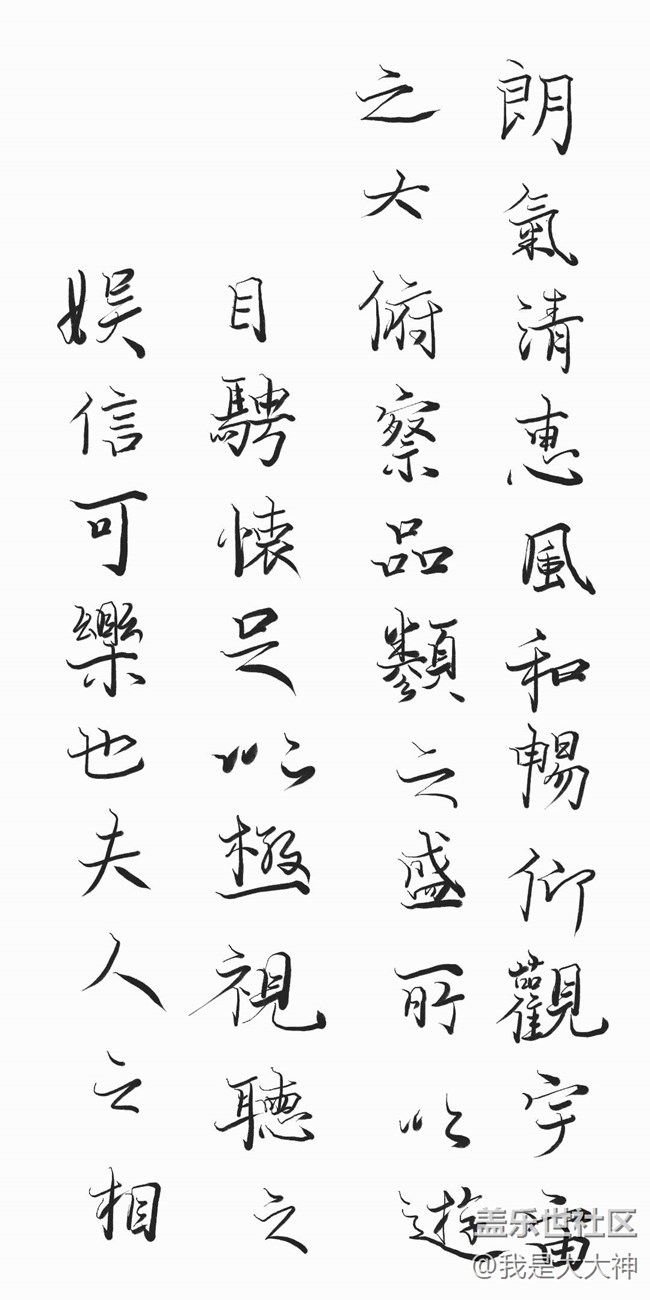 朗氣清惠風和暢仰觀宇宙
之大俯察品類之盛所以遊
目騁懷足以極視聽之
娛信可樂也夫人之相
盖乐世社区
@我是大大神